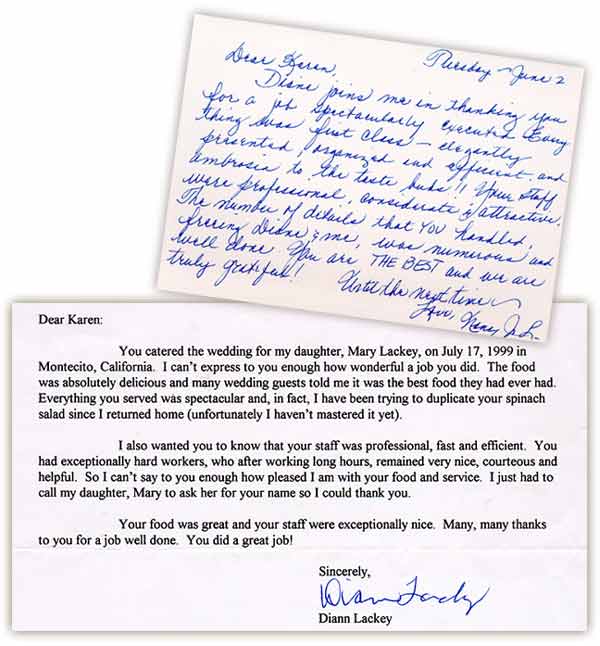 Tuesday – June 2
Dear Karen,
Diane joins me in thanking you
for a job spectacularly executed. Every
thing was first class – elegantly
presented, organized and efficient – and
ambrosia to the taste buds!! Your staff
were professional, considerate & attractive.
The number of details that YOU handled,
freeing Diane & me, was numerous and
well done. You are THE BEST and we are
truly grateful!
Until the next time –
Love, Nancy
Dear Karen:
You catered the wedding for my daughter, Mary Lackey, on July 17, 1999 in
Montecito, California. I can't express to you enough how wonderful a job you did. The food
was absolutely delicious and many wedding guests told me it was the best food they had ever had.
Everything you served was spectacular and, in fact, I have been trying to duplicate your spinach
salad since I returned home (unfortunately I haven't mastered it yet).
I also wanted you to know that your staff was professional, fast and efficient. You
had exceptionally hard workers, who after working long hours, remained very nice, courteous and
helpful. So I can't say to you enough how pleased I am with your food and service. I just had to
call my daughter, Mary to ask her for your name so I could thank you.
Your food was great and your staff were exceptionally nice. Many, many thanks
to you for a job well done. You did a great job!
Sincerely,
Diann Lackey
Diann Lackey